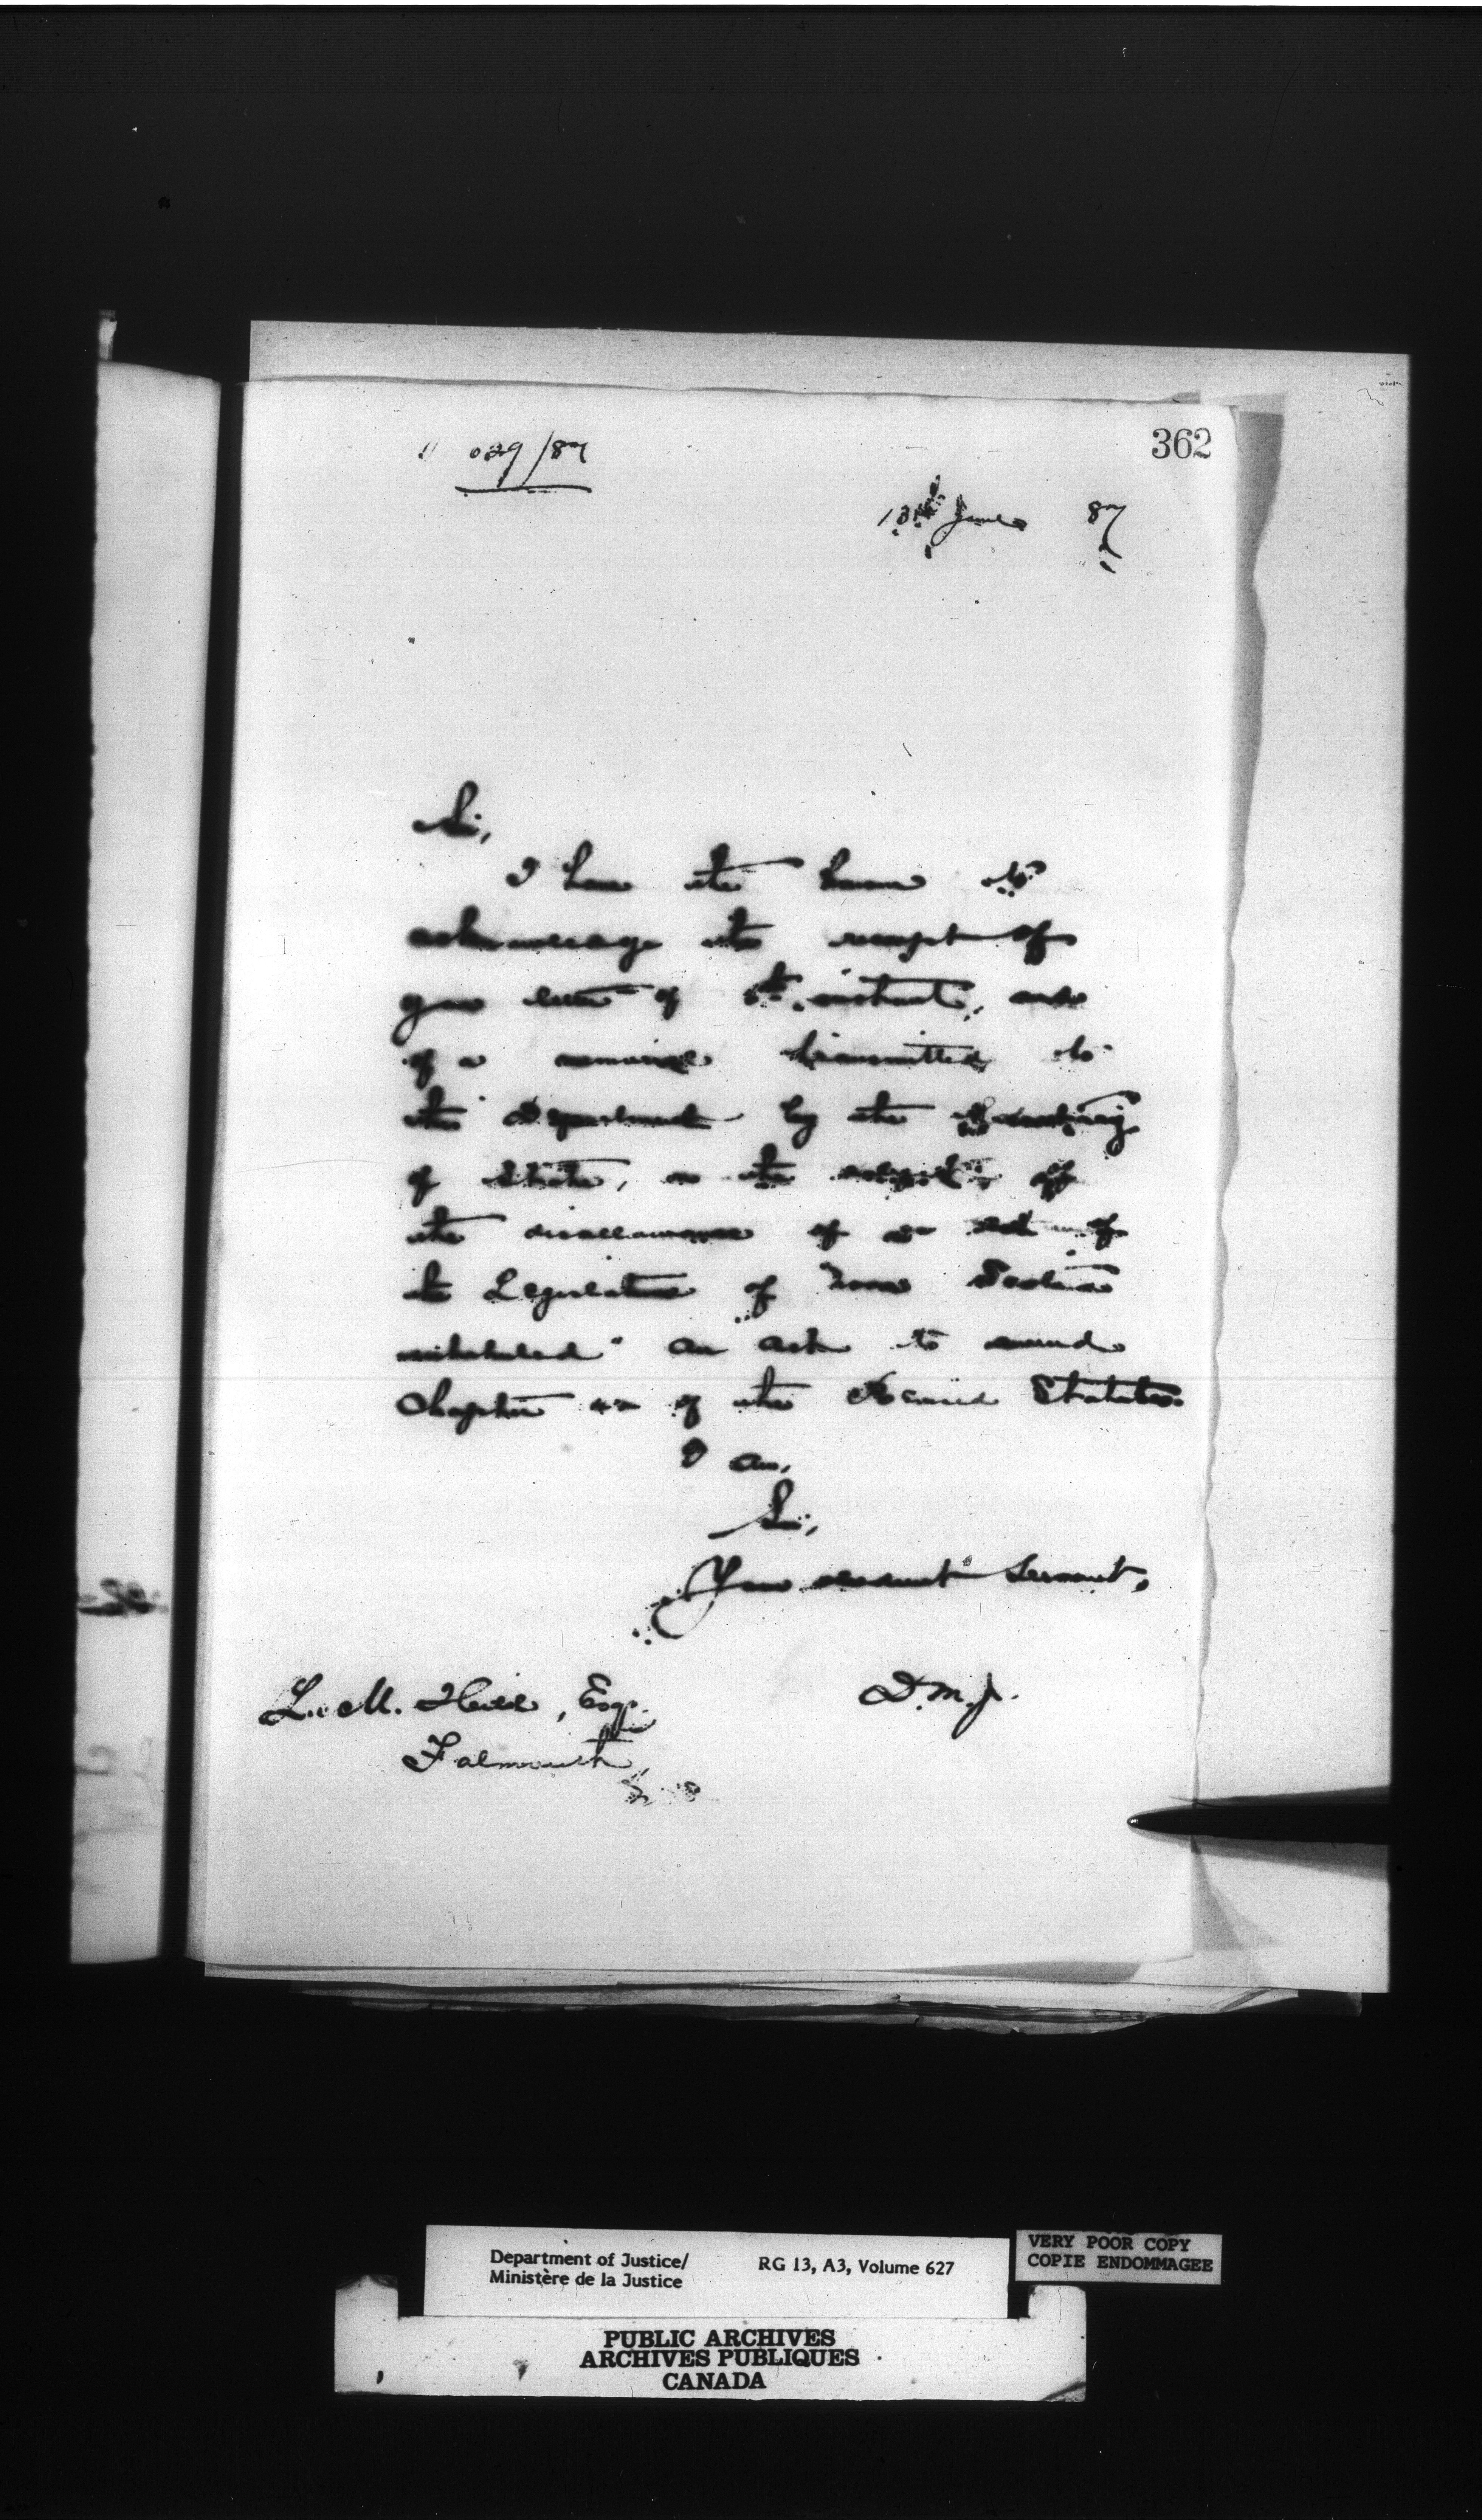 029/87
362
13th June 87
Sir,
I have the honor to
acknowledge the receipt of
your letter of 6th instant, and
of a memorial transmitted to
the Department by the Secretary
of State, on the subject of
the disallowance of an Act of
the Legislature of Nova Scotia
intituled "An Act to amend
Chapter of the Revised Statutes.
I am,
Sir,
Your obedient Servant,
D.M.J.
L. M. Esq.
Falmouth,
Department of Justice/
Ministère de la Justice
RG 13, A3, Volume 627
VERY POOR COPY
COPIE ENDOMMAGEE
PUBLIC ARCHIVES
ARCHIVES PUBLIQUES
CANADA